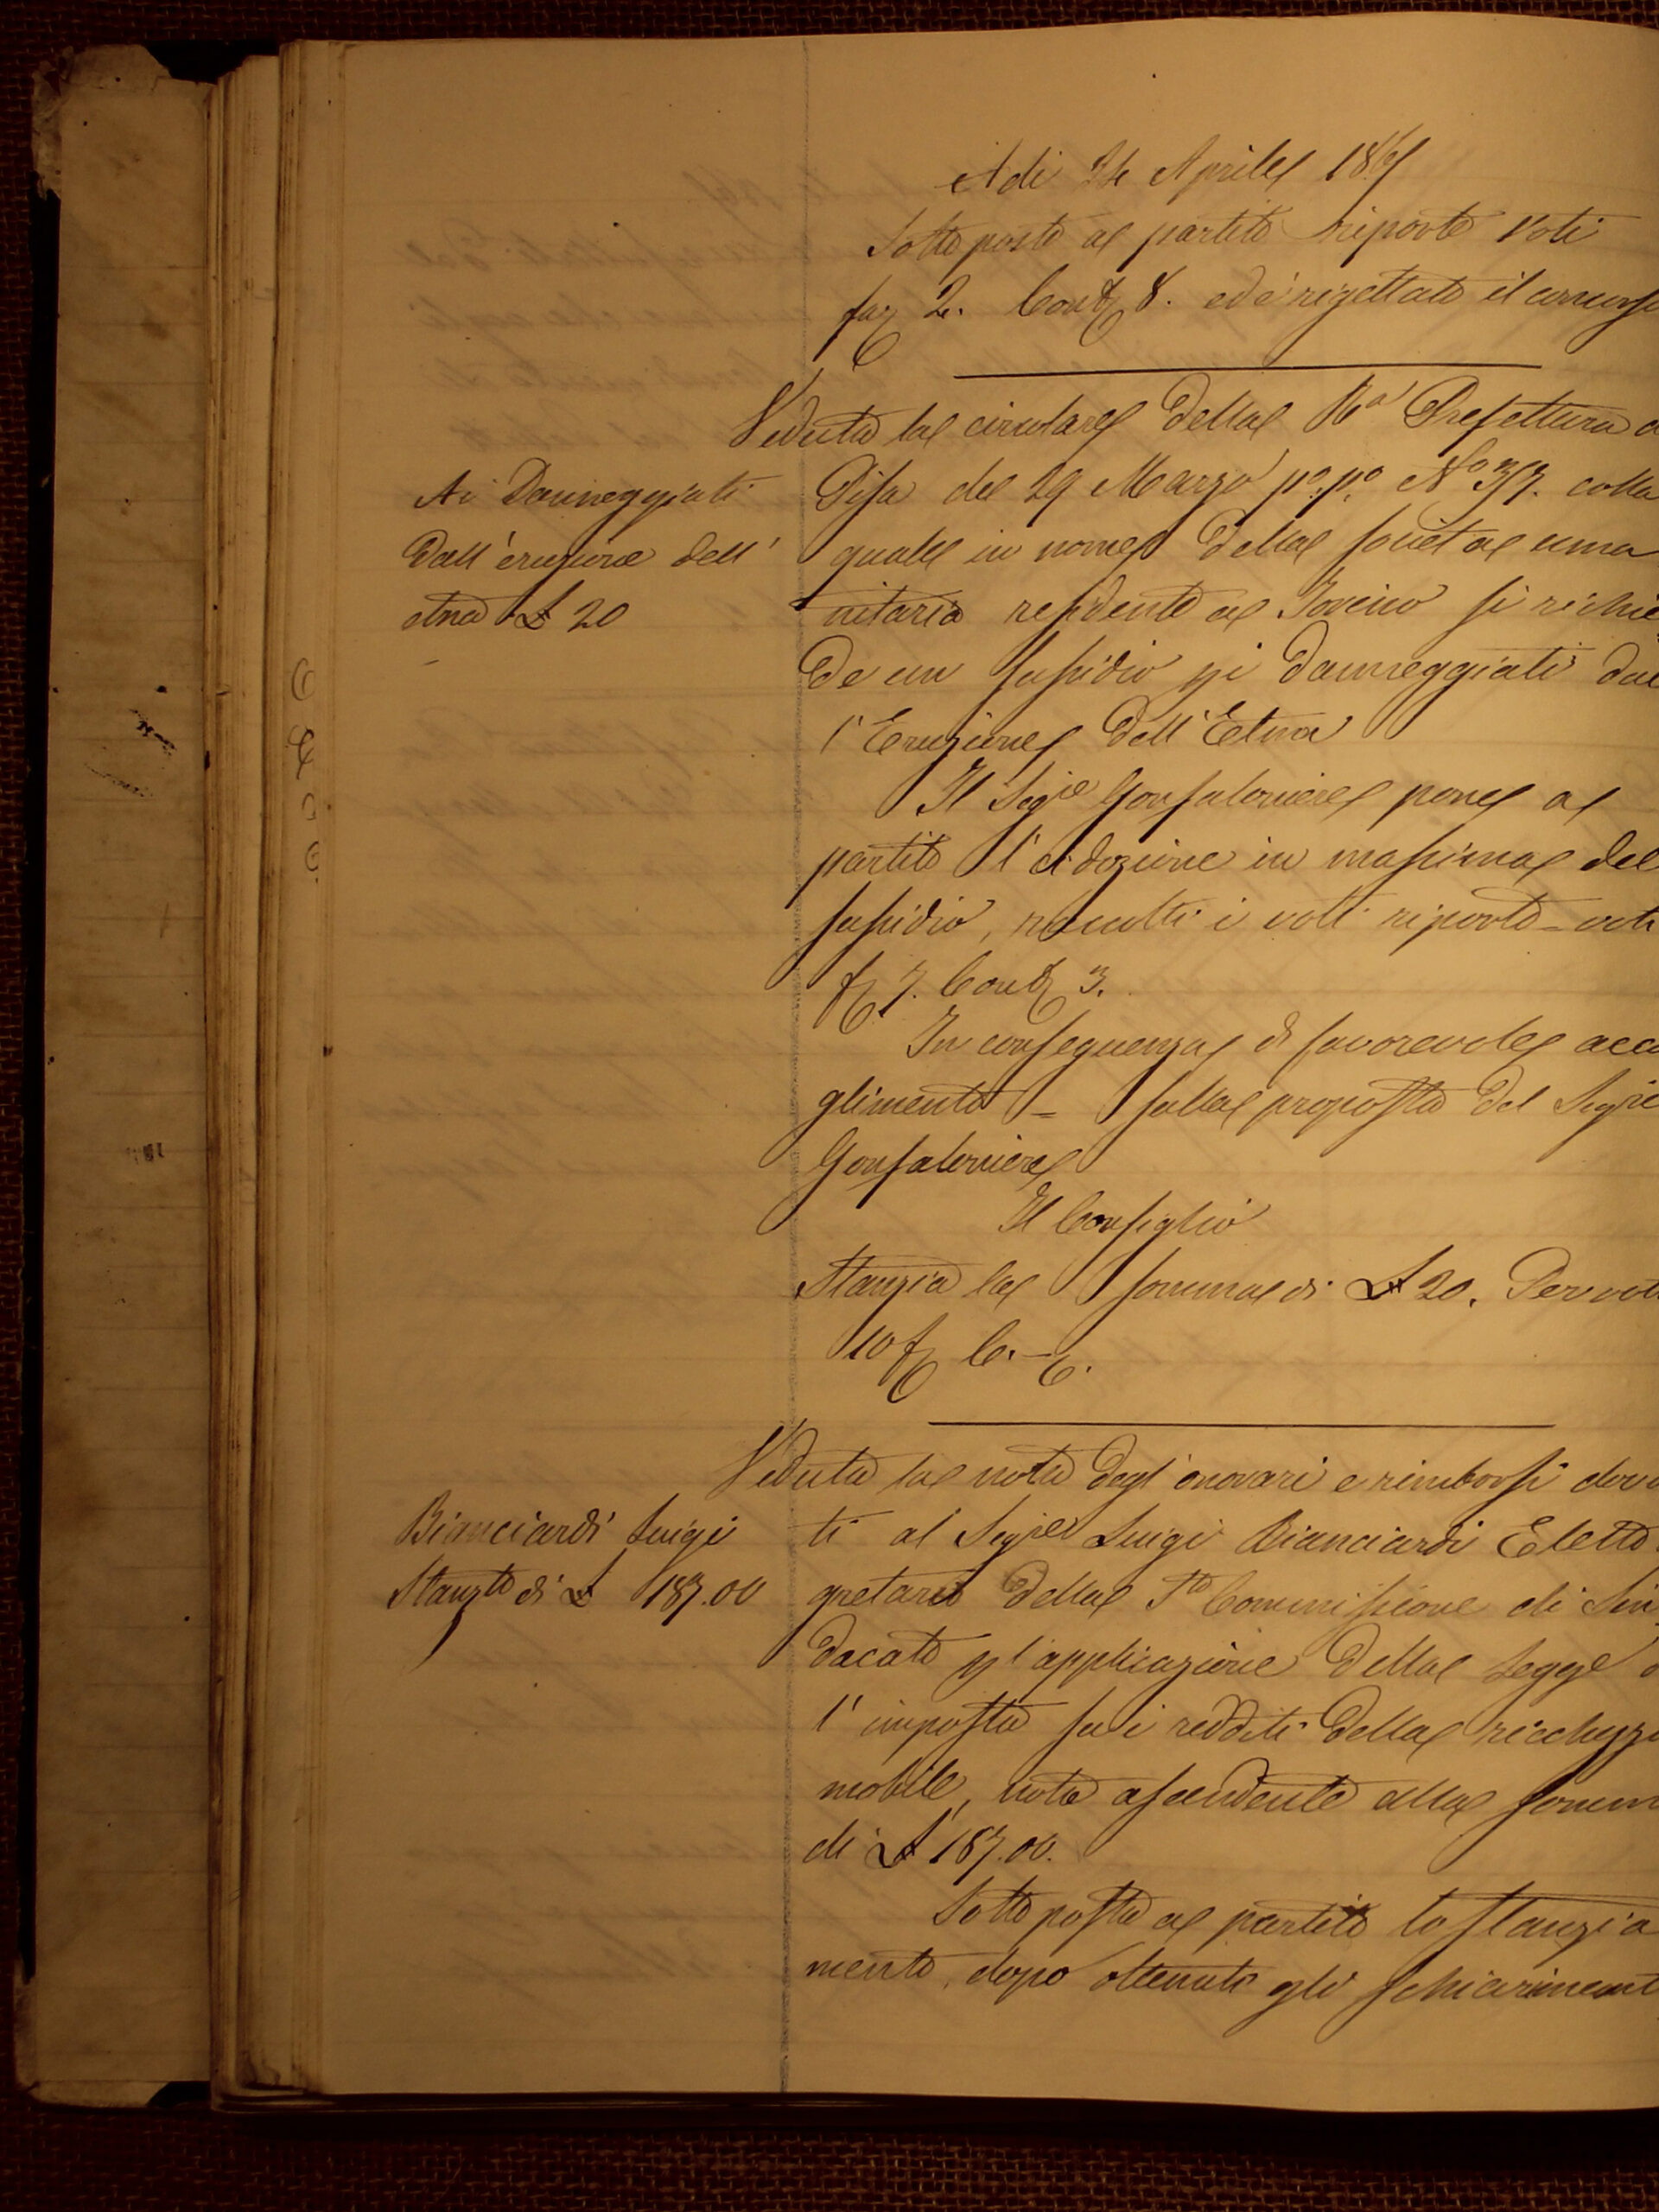 Adi 24 Aprile 186
Sotto posto al partito riportò Voti
fav 2. Contr 8. ed è rigettato il concorso
Veduta la circolare della Ra Prefettura
Ai Danneggiati
Dall'eruzione dell'
etna £ 20
Pisa del 29 Marzo po. po. No 313. colla
quale in nome della società uma
nitaria residente a Torino si richie
de un sussidio pi danneggiati dal
l'Eruzione dell'Etna
Il Sigre Gonfaloniere pone al
partito l'adozione in massima del
sussidio, raccolti i voti riportò - voti
f 7. Contr 3.
In conseguenza di favorevole acco
glimento = sulla proposta del Sigre
Gonfaloniere
Il Consiglio
Stanzia la somma di £ 20. Per voti
10 f C. -
Veduta la nota degl'onorari e rimborsi dovu
Bianciardi Luigi
Stanzto di £ 187.00
ti al Sigre Luigi Bianciardi Eletto
gretario della Commissione di Sin
dacato pl'applicazione della Legge
l'imposta su i redditi della ricchezza
mobile, nota ascendente alla somm
di £ 187.00.
Sotto posto al partito lo stanzia
mento, dopo ottenuti gli schiariment